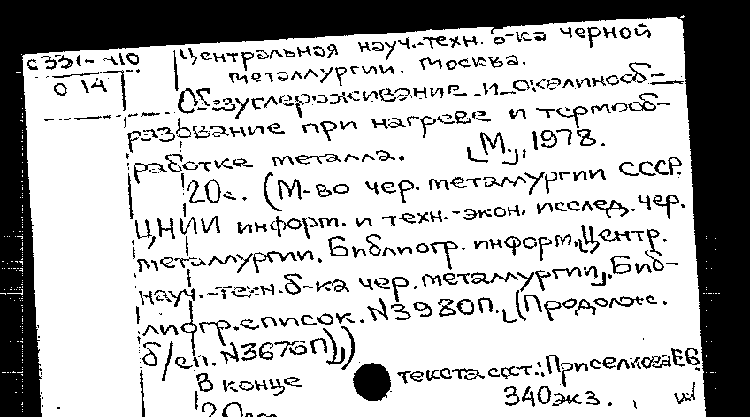 С331-410 Центральная науч.-техн. б-ка черной
0 14 металлургии. Москва.
Обезуглероживание и окалинооб-
разование при нагреве и термооб-
работке металла. [М.], 1978.
20с. (М-во чер. металлургии СССР.
ЦНИИ информ. и техн.-экон. исслед. чер.
металлургии. Библиогр. информ. [Центр.
науч.-техн. б-ка чер. металлургии]. Биб-
лиогр. список. N3980П. [(Продолж.
б/сп. N3676П)])
В конце текста сост.: Приселкова Е.В.
340 экз.